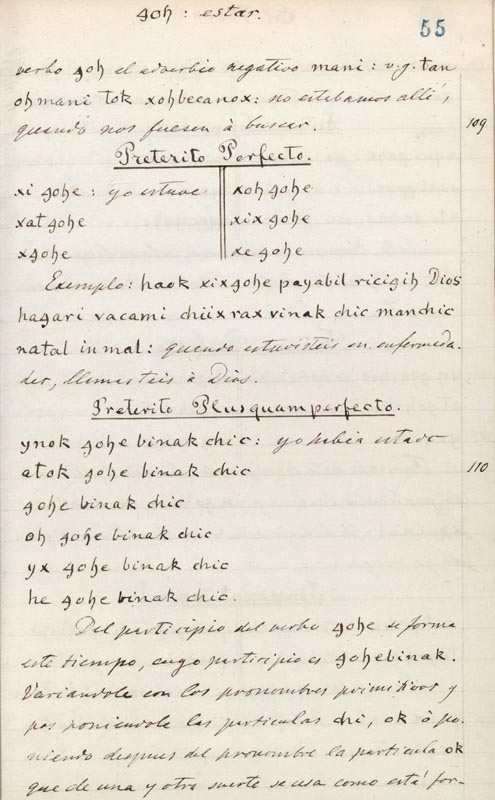 goh : estar.
55
verbo goh el adverbio negativo mani : v.g. tan
oh mani tok xohbecanox : no estabamos alli,
quando nos fueron à buscar.
109
Preterito Perfecto.
xi gohe : yo estuve xoh gohe
xat gohe xix gohe
xgohe xe gohe
Exemplo : haok xixgohe payabil ricigih Dios
hagari vacami chiix rax vinak chic manchic
natal inmal : quando estuvisteis en enfermeda-
des, llamasteis à Dios.
Preterito Plusquamperfecto.
ynok gohe binak chic : yo habia estado
atok gohe binak chic
110
gohe binak chic
oh gohe binak chic
yx gohe binak chic
he gohe binak chic.
Del participio del verbo gohe se forma
este tiempo, cuyo participio es gohebinak.
Variandole con los pronombres primitivos y
pos poniendole las particulas chi, ok ò po-
niendo despues del pronombre la particula ok
que de una y otra suerte se usa como está for-